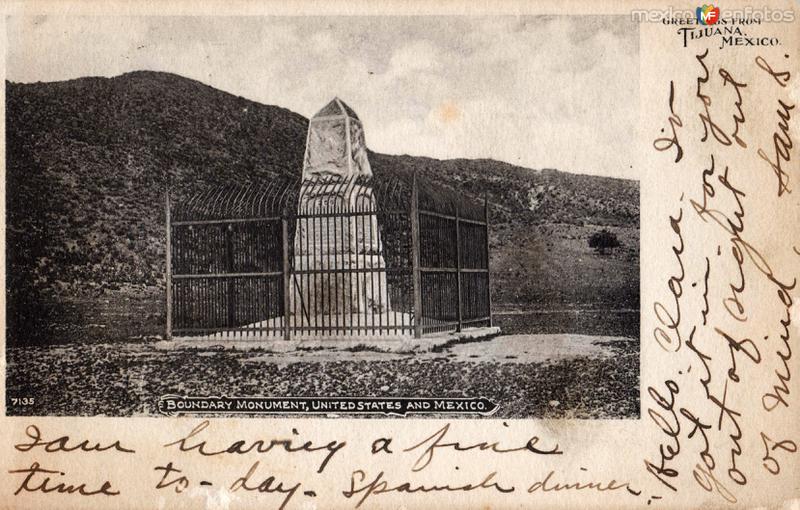 mexicoenfotos
GREETINGS FROM
TIJUANA,
MEXICO.
7135
BOUNDARY MONUMENT, UNITED STATES AND MEXICO.
I am having a fine
time to-day. Spanish dinner.
Hello. Clara. I'v
got it in for you
out of sight out
of mind, Sam S.